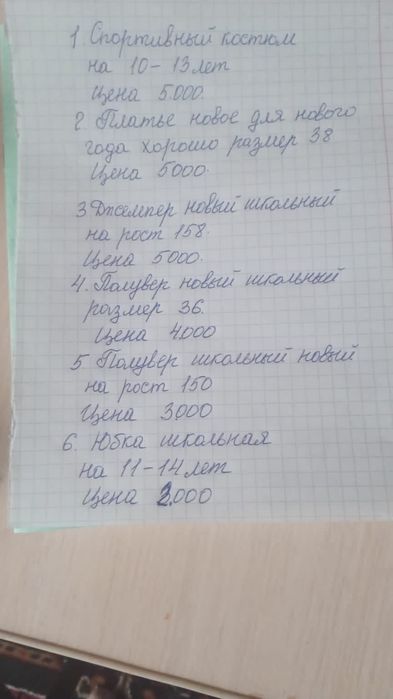 1. Спортивный костюм
на 10-13 лет
Цена 5.000.
2. Платье новое для нового
года хорошо размер 38
Цена 5000.
3 Джемпер новый школьный
на рост 158.
Цена 5000.
4. Полувер новый школьный
размер 36.
Цена 4000
5 Полувер школьный новый
на рост 150
Цена 3000
6. Юбка школьная
на 11-14 лет
Цена 2.000